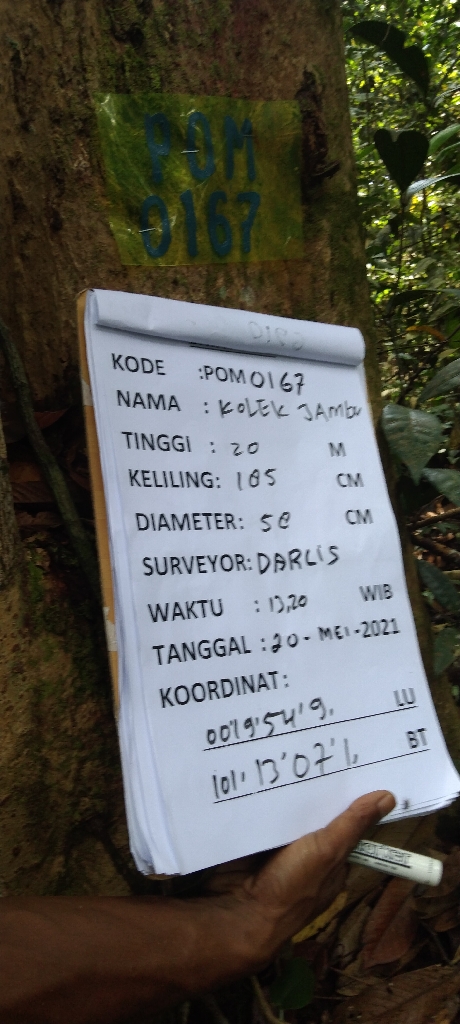 POM
0167
KODE :POM0167
NAMA : KOLEK JAMBU
TINGGI : 20 M
KELILING: 185 CM
DIAMETER: 58 CM
SURVEYOR: DARLIS
WAKTU : 13,20 WIB
TANGGAL : 20 - MEI - 2021
KOORDINAT:
00'19'54'9. LU
101' 13'07'1. BT